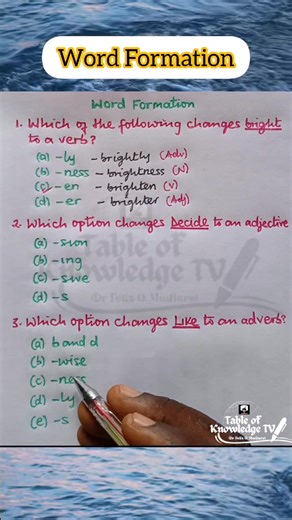 Word Formation
Word Formation
1. Which of the following changes bright
to a verb?
(a) -ly - brightly (Adv)
(b) -ness - brightness (N)
(c) -en - brighten (V)
(d) -er - brighter (Adj)
2. Which option changes Decide to an adjective
(a) -sion
(b) -ing
(c) -sive
(d) -s
Table of
Knowledge TV
3. Which option changes Like to an adverb?
(a) b and d
(b) -wise
(c) -ness
(d) -ly
(e) -s
Table of
Knowledge TV